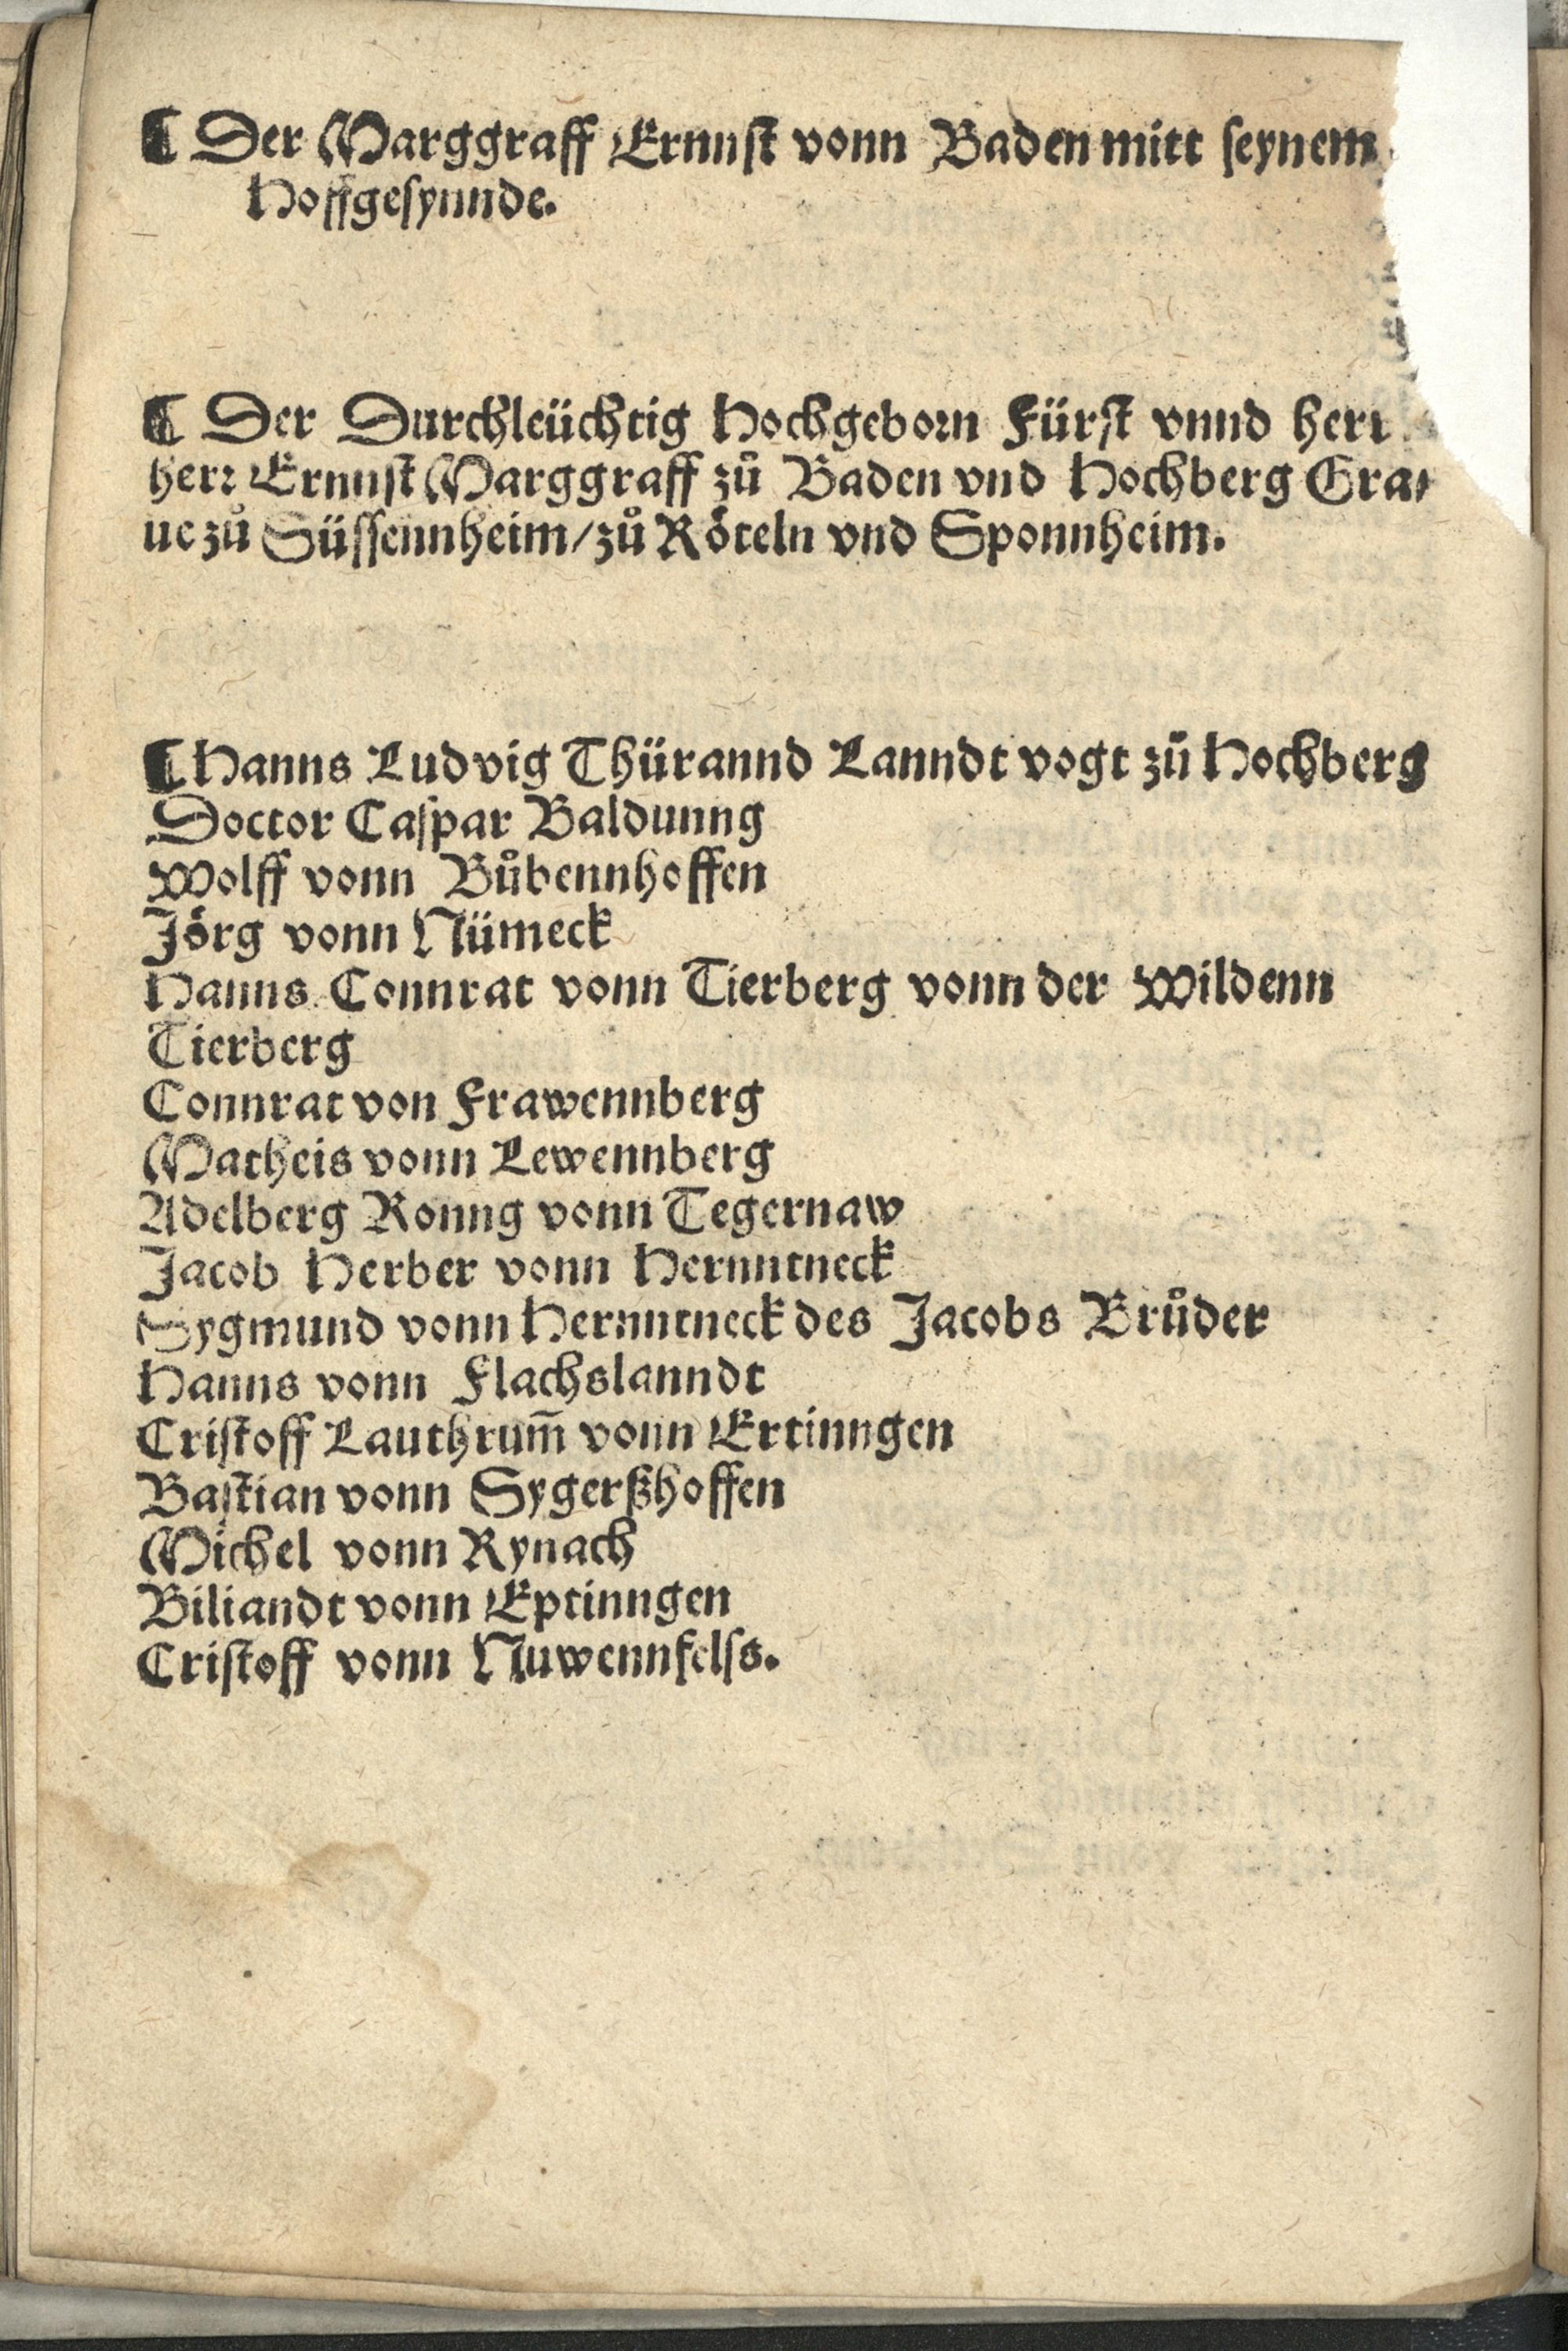 ¶ Der Marggraff Ernnst vonn Baden mitt seynem
Hoffgesynnde.
¶ Der Durchleüchtig Hochgeborn Fürst vnnd herr
herr Ernnst Marggraff zů Baden vnd Hochberg Gra⸗
ue zů Süssennheim/zů Röteln vnd Sponnheim.
¶ Hanns Ludvig Thürannd Lanndt vogt zů Hochberg
Doctor Caspar Baldunng
Wolff vonn Bůbennhoffen
Jörg vonn Nümeck
Hanns Connrat vonn Tierberg vonn der Wildenn
Tierberg
Connrat von Frawennberg
Matheis vonn Lewennberg
Adelberg Ronng vonn Tegernaw
Jacob Herber vonn Hernntneck
Sygmund vonn Hernntneck des Jacobs Brůder
Hanns vonn Flachslanndt
Cristoff Lauthrum̄ vonn Ertinngen
Bastian vonn Sygerßhoffen
Michel vonn Rynach
Biliandt vonn Eptinngen
Cristoff vonn Nuwennfelss.